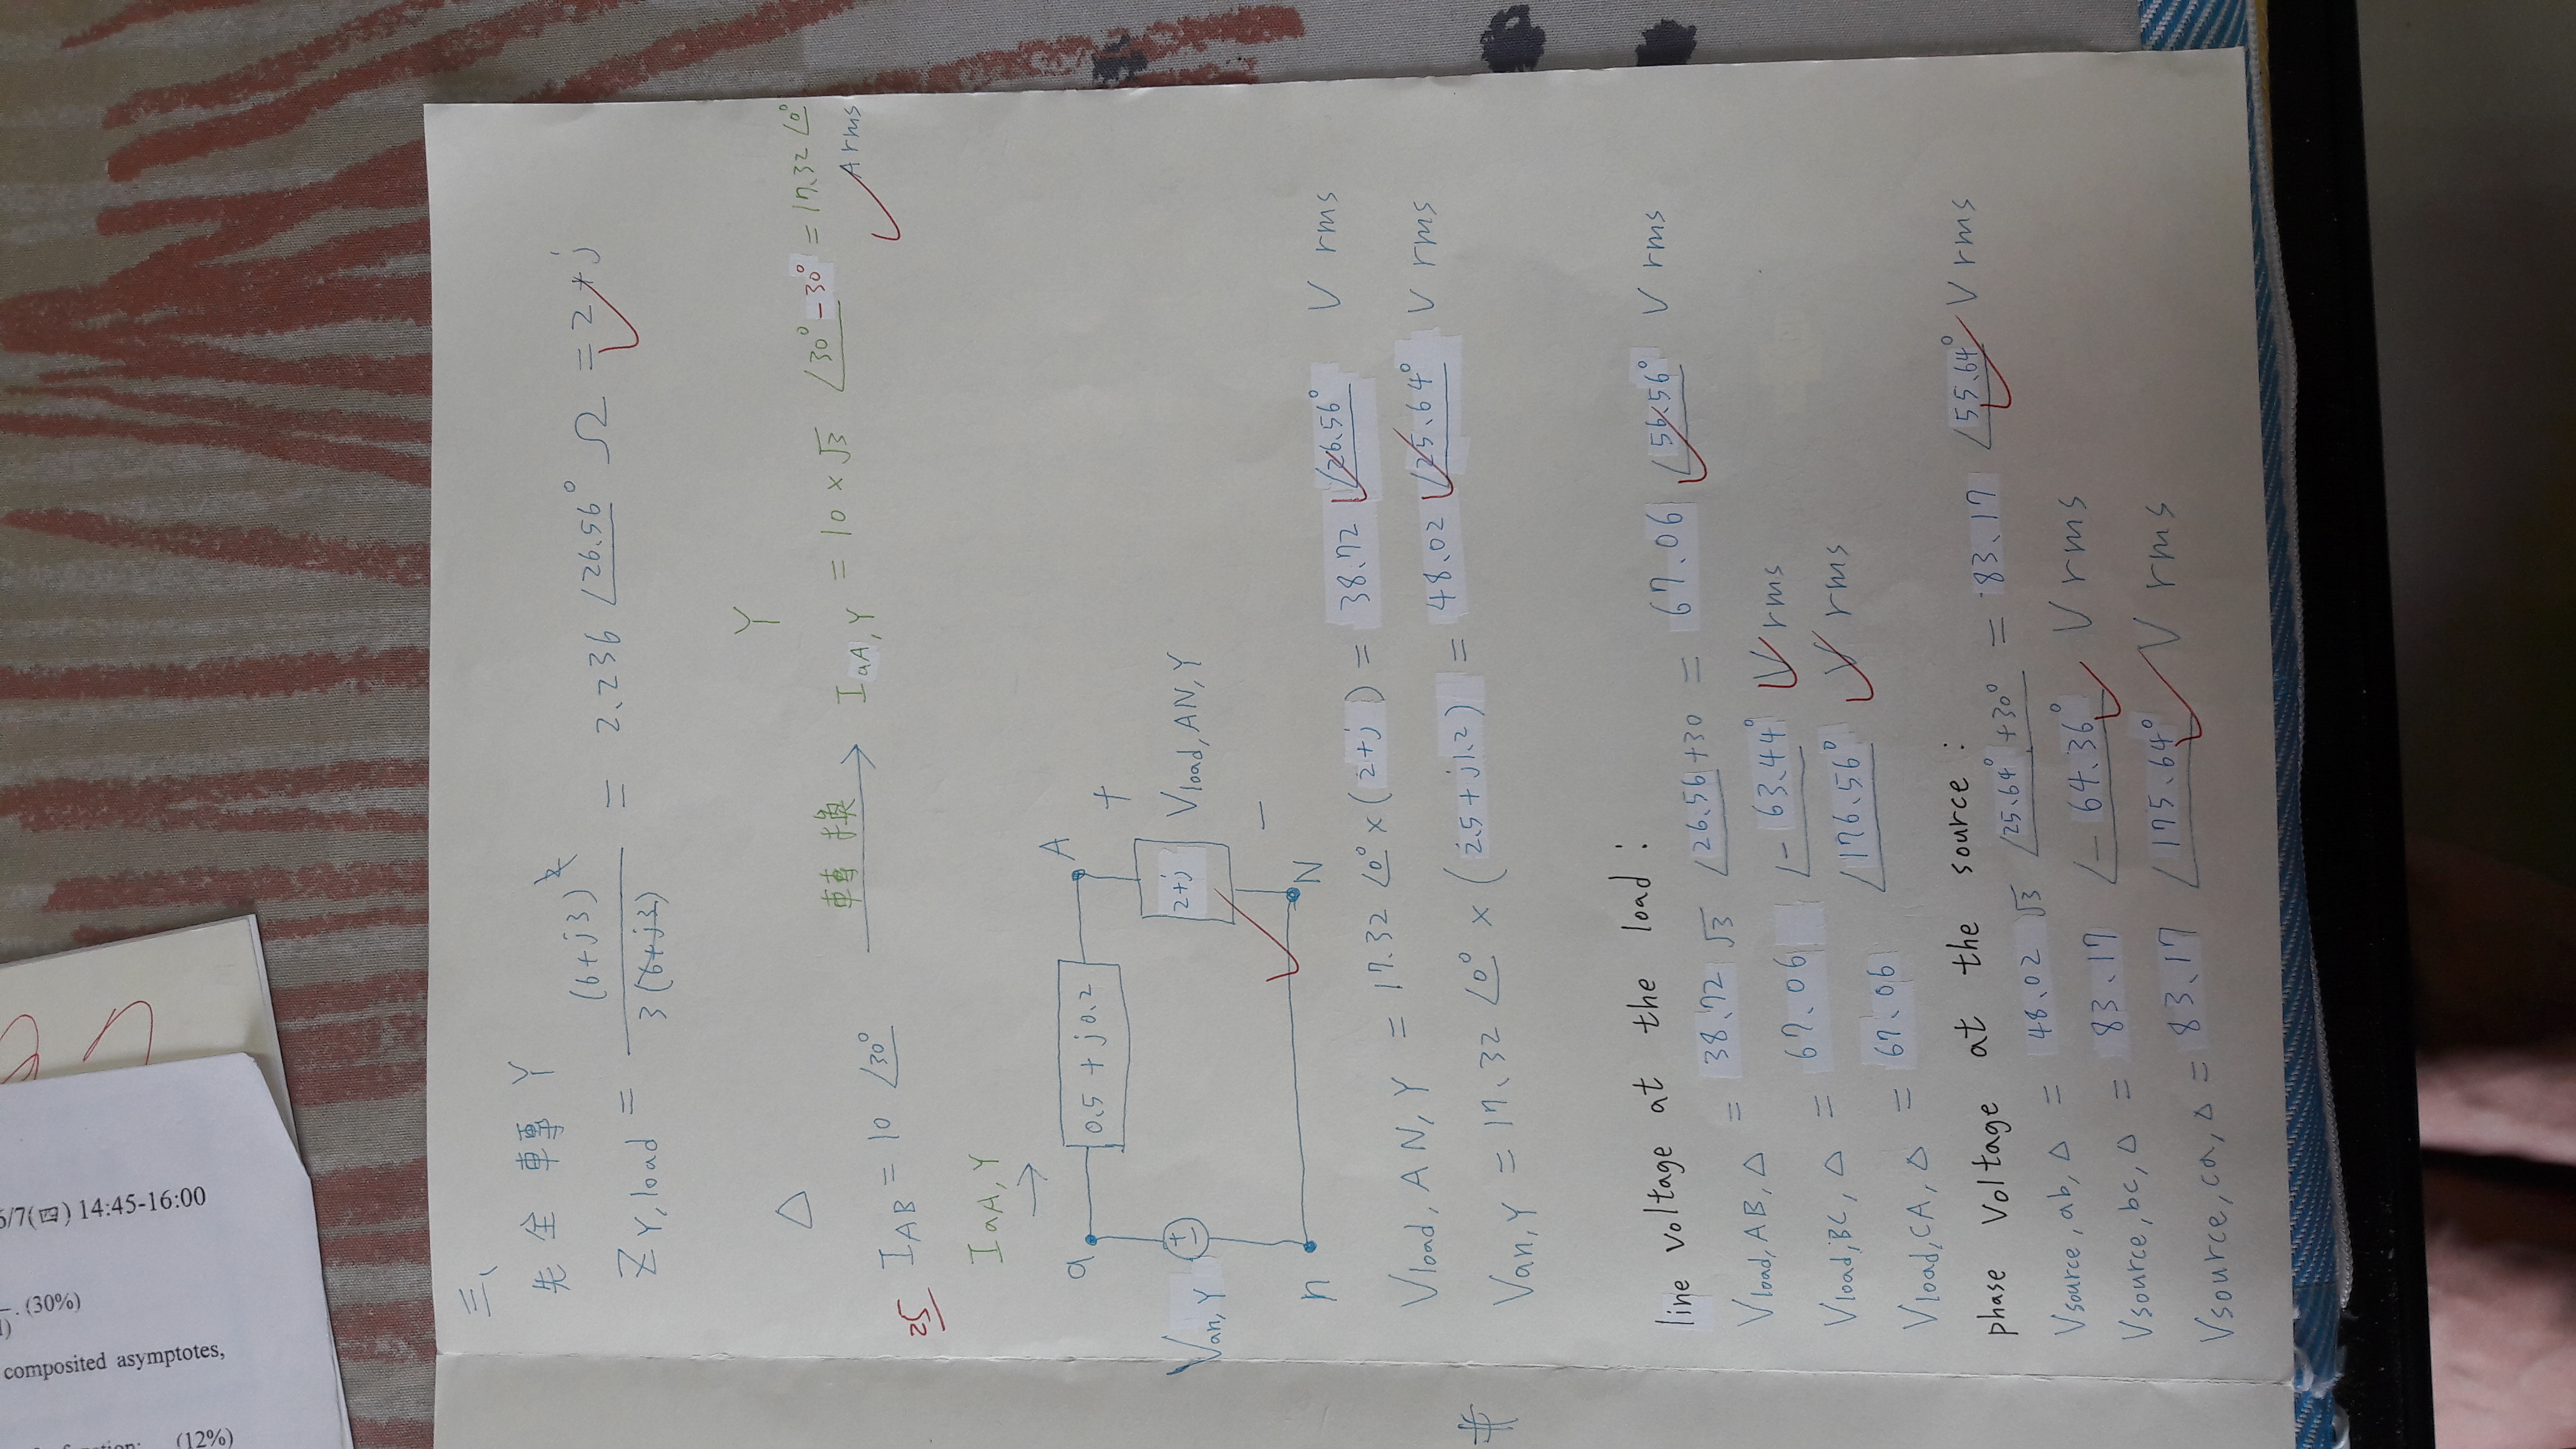 6/7(四) 14:45-16:00
. (30%)
composited asymptotes,
(12%)
三、
先全轉Y
Z Y,load = (6+j3)² / 3(6+j3) = 2.236 ∠26.56° Ω = 2+j
Δ
Y
I AB = 10 ∠30° 轉換 → I aA,Y = 10 × √3 ∠30°-30° = 17.32 ∠0°
A rms
25
I aA,Y
→
a
0.5 + j0.2
A
+
Van,Y
+
-
2+j
Vload,AN,Y
-
n
N
Vload,AN,Y = 17.32 ∠0° × (2+j) = 38.72 ∠26.56° V rms
Van,Y = 17.32 ∠0° × (2.5+j1.2) = 48.02 ∠25.64° V rms
#
line voltage at the load :
Vload,AB,Δ = 38.72 √3 ∠26.56+30 = 67.06 ∠56.56° V rms
Vload,BC,Δ = 67.06 ∠-63.44° V rms
Vload,CA,Δ = 67.06 ∠176.56° V rms
phase Voltage at the source :
Vsource,ab,Δ = 48.02 √3 ∠25.64°+30° = 83.17 ∠55.64° V rms
Vsource,bc,Δ = 83.17 ∠-64.36° V rms
Vsource,ca,Δ = 83.17 ∠175.64° V rms